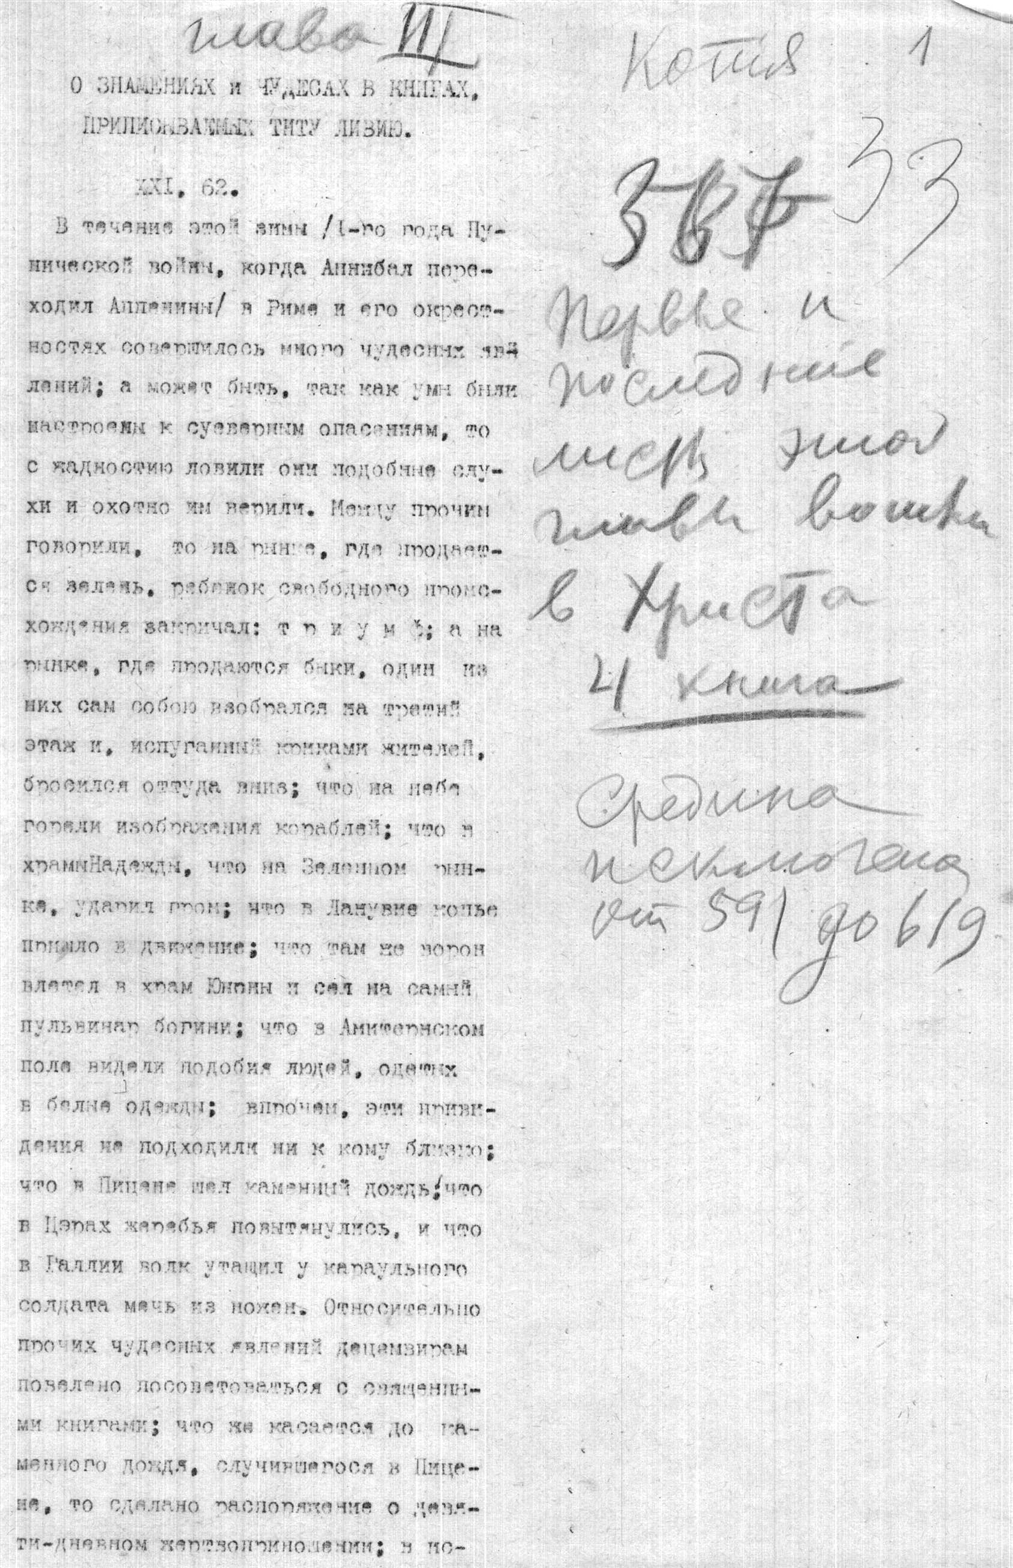 глава III
Копия 1
О ЗНАМЕНИЯХ и ЧУДЕСАХ В КНИГАХ,
ПРИПИСЫВАЕМЫХ ТИТУ ЛИВИЮ.
33
XXI, 62.
В течение этой зимы /1-го года Пу-
нической войны, когда Аннибал пере-
ходил Аппенины/ в Риме и его окрест-
ностях совершилось много чудесных яв-
лений; а может быть, так как умы были
настроены к суеверным опасениям, то
с жадностию ловили они подобные слу-
хи и охотно им верили. Между прочим
говорили, то на рынке, где продает-
ся зелень, ребенок свободного проис-
хождения закричал: т р и у м ф; а на
рынке, где продаются быки, один из
них сам собою взобрался на третий
этаж и, испуганный криками жителей,
бросился оттуда вниз; что на небе
горели изображения кораблей; что в
храмиНадежды, что на Зеленном рын-
ке, ударил гром; что в Ланувие копье
пришло в движение; что там же ворон
влетел в храм Юноны и сел на самый
пульвинар богини; что в Амитернском
поле видели подобия людей, одетых
в белые одежды; впрочем, эти приви-
дения не подходили ни к кому близко;
что в Пицене шел каменный дождь; что
в Цэрах жеребья повытянулись, и что
в Галлии волк утащил у караульного
солдата мечь из ножен. Относительно
прочих чудесных явлений децемвирам
повелено посоветоваться с священны-
ми книгами; что же касается до ка-
менного дождя, случившегося в Пице-
не, то сделано распоряжение о девя-
ти-дневном жертвоприношении; в по-
Первые и
последние
листы этой
главы вошли
в Христа
4 книга
Средина
исключена
от 591 до 619